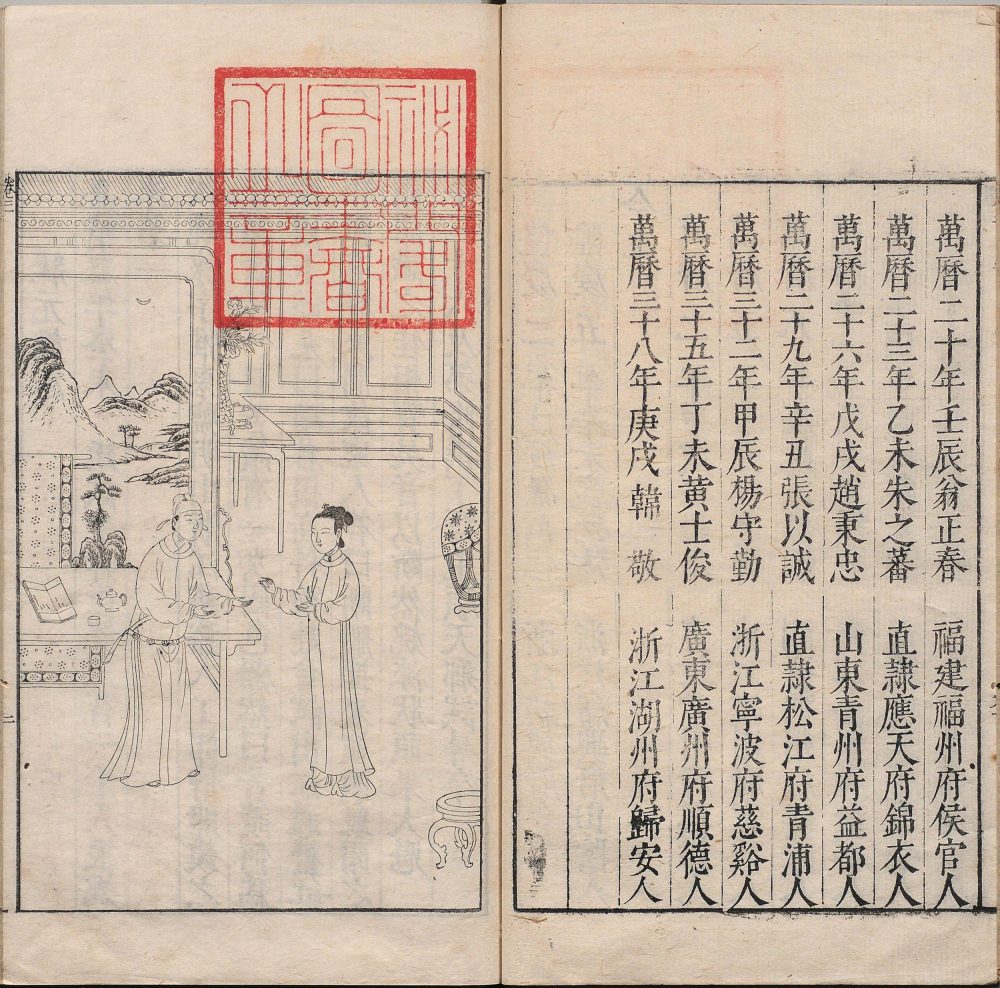 萬曆二十年壬辰翁正春 福建福州府侯官人
萬曆二十三年乙未朱之蕃 直隸應天府錦衣人
萬曆二十六年戊戌趙秉忠 山東青州府益都人
萬曆二十九年辛丑張以誠 直隸松江府青浦人
萬曆三十二年甲辰楊守勤 浙江寧波府慈谿人
萬曆三十五年丁未黃士俊 廣東廣州府順德人
萬曆三十八年庚戌韓敬 浙江湖州府歸安人
卷三
二